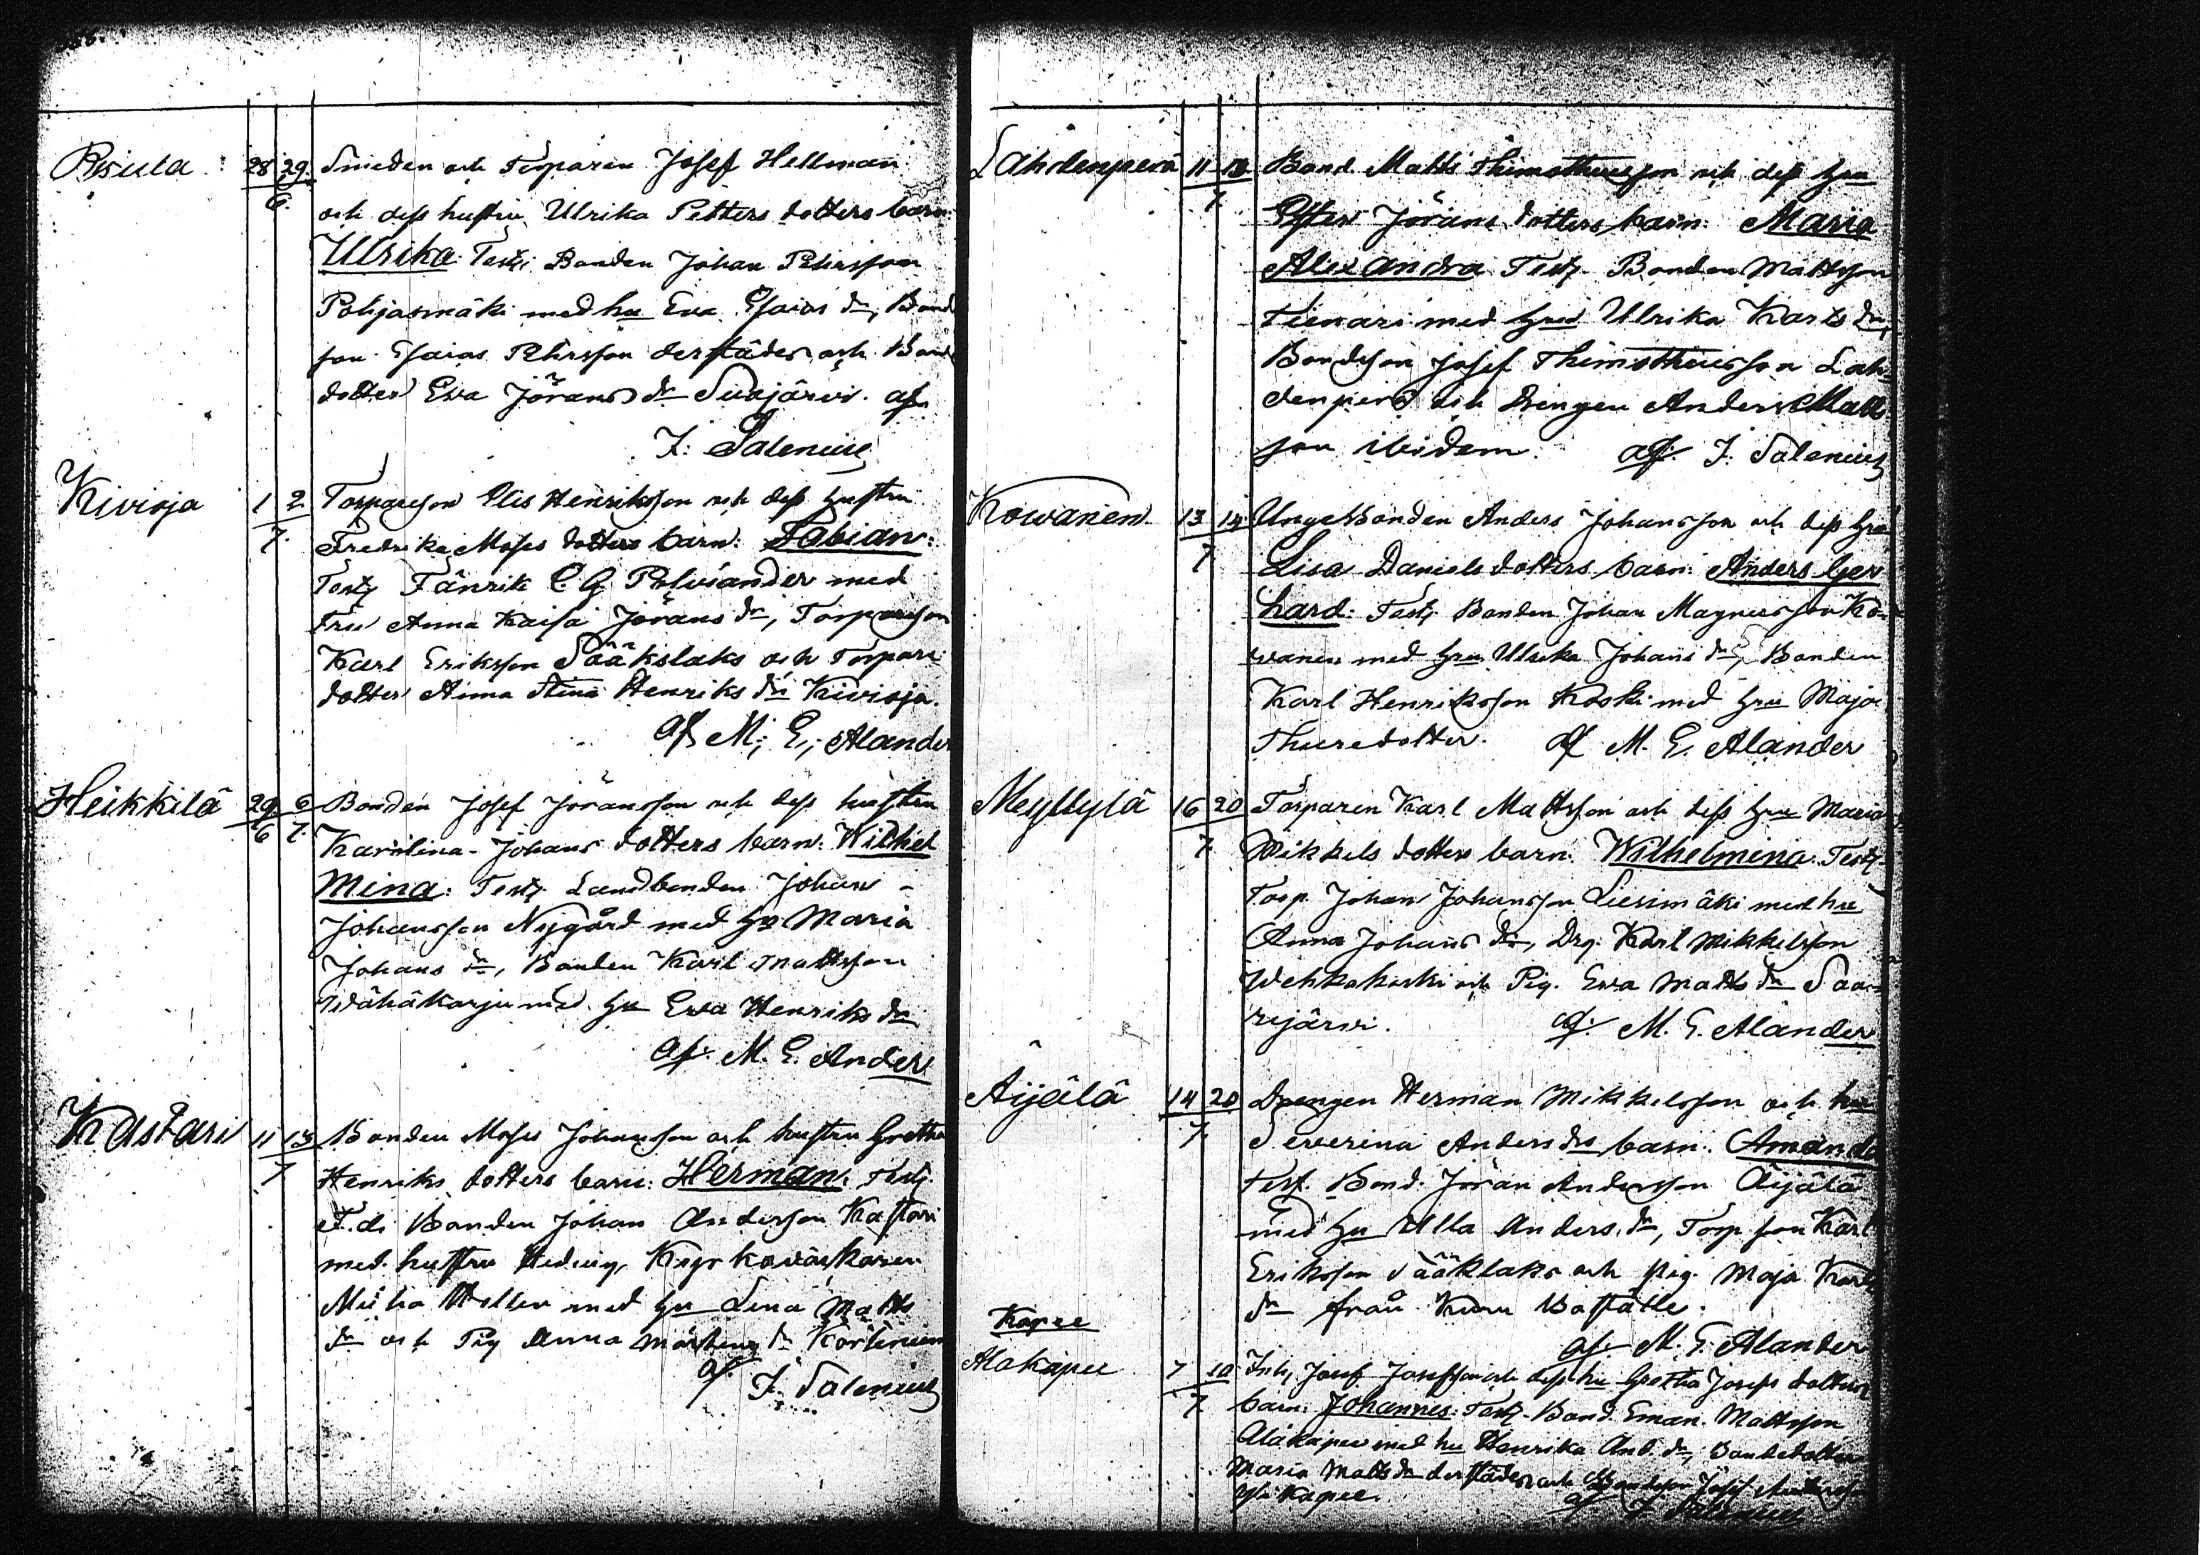 28 29 Smeden och Torparen Josef Hellman
6. och dess hustru Ulrika Petters dotters barn
Ulrika: Test: Bonden Johan Pehrsson
Pohjasmäki med hu Eva Esaias dr, Bond
son Esaias Pehrsson derstädes och Bond
dotter Eva Jörans dr Suojärvi. af
F. Salenius
Kivioja 1 2 Torpareson Elis Henriksson och dess hustru
7. Fredrika Moses dotters barn: Fabian:
Test: Fänrik C. G. Polviander med
Fru Anna Kaisa Jörans dr, Torpareson
Karl Eriksson Sääkslaks och Torpare
dotter Anna Stina Henriks dr Kivioja.
af M. E. Alander
Heikkilä 29 6 Bonden Josef Jöransson och dess hustru
6 7. Karolina Johans dotters barn: Wilhel
mina: Test: Landbonden Johan
Johansson Nygård med hu Maria
Johans dr, Bonden Karl Mattsson
Wähäkarju med hu Ewa Henriks dr
af. M. E. Ander
Kastari 11 13 Bonden Moses Johansson och hustru Gretha
7 Henriks dotters barn: Herman: Test:
F.d. Bonden Johan Andersson Kastari
med hustru Hedvig, Kyrkoväktaren
med hu Lena Matts
dr och Pig Anna Mårtens dr
af. F. Salenius
Lahdenperä 11 13 Bond. Matts Thimotheusson och dess hu
7. Ester Jörans dotters barn: Maria
Alexandra Test: Bonden Mattsson
Tienari med hu Ulrika Karls dr,
Bondeson Josef Thimotheusson Lah
denperä och Drengen Anders Matts
son ibidem. af. F. Salenius
Kowanen 13 14 Unge Bonden Anders Johansson och dess hu
7 Lisa Daniels dotters barn: Anders Ger
hard: Test: Bonden Johan Magnusson Ko
wanen med hu Ulrika Johans dr, Bonden
Karl Henriksson Koski med hu Maja
Thuredotter. af M. E. Alander
Meyllylä 16 20 Torparen Karl Mattsson och dess hu Maria
7. Mikkels dotters barn: Wilhelmina: Test:
Torp. Johan Johansson Liesimäki med hu
Anna Johans dr, Drg. Karl Mikkelsson
Wehkakoski och Pig. Ewa Matts dr Saa
rijärvi. af. M. E. Alander
Äijälä 14 20 Drengen Herman Mikkelsson och hu
7. Severina Anders drs barn: Amanda
Test. Bond. Jöran Andersson Äijälä
med hu Ulla Anders dr, Torp. son Karl
Eriksson Sääklaks och Pig. Maja Karls
dr från Kuru Boställe.
af. M. E. Alander
Kapee
Alakapee 7 10 Inh. Josef Josefsson och dess hu Gretha Josefs dotters
7. barn: Johannes: Test: Bond. Eman. Mattsson
Alakapee med hu Henrika And. dr, Bondedotter
Maria Matts dr derstädes och Bondeson Josef
Kapee. af F. Salenius